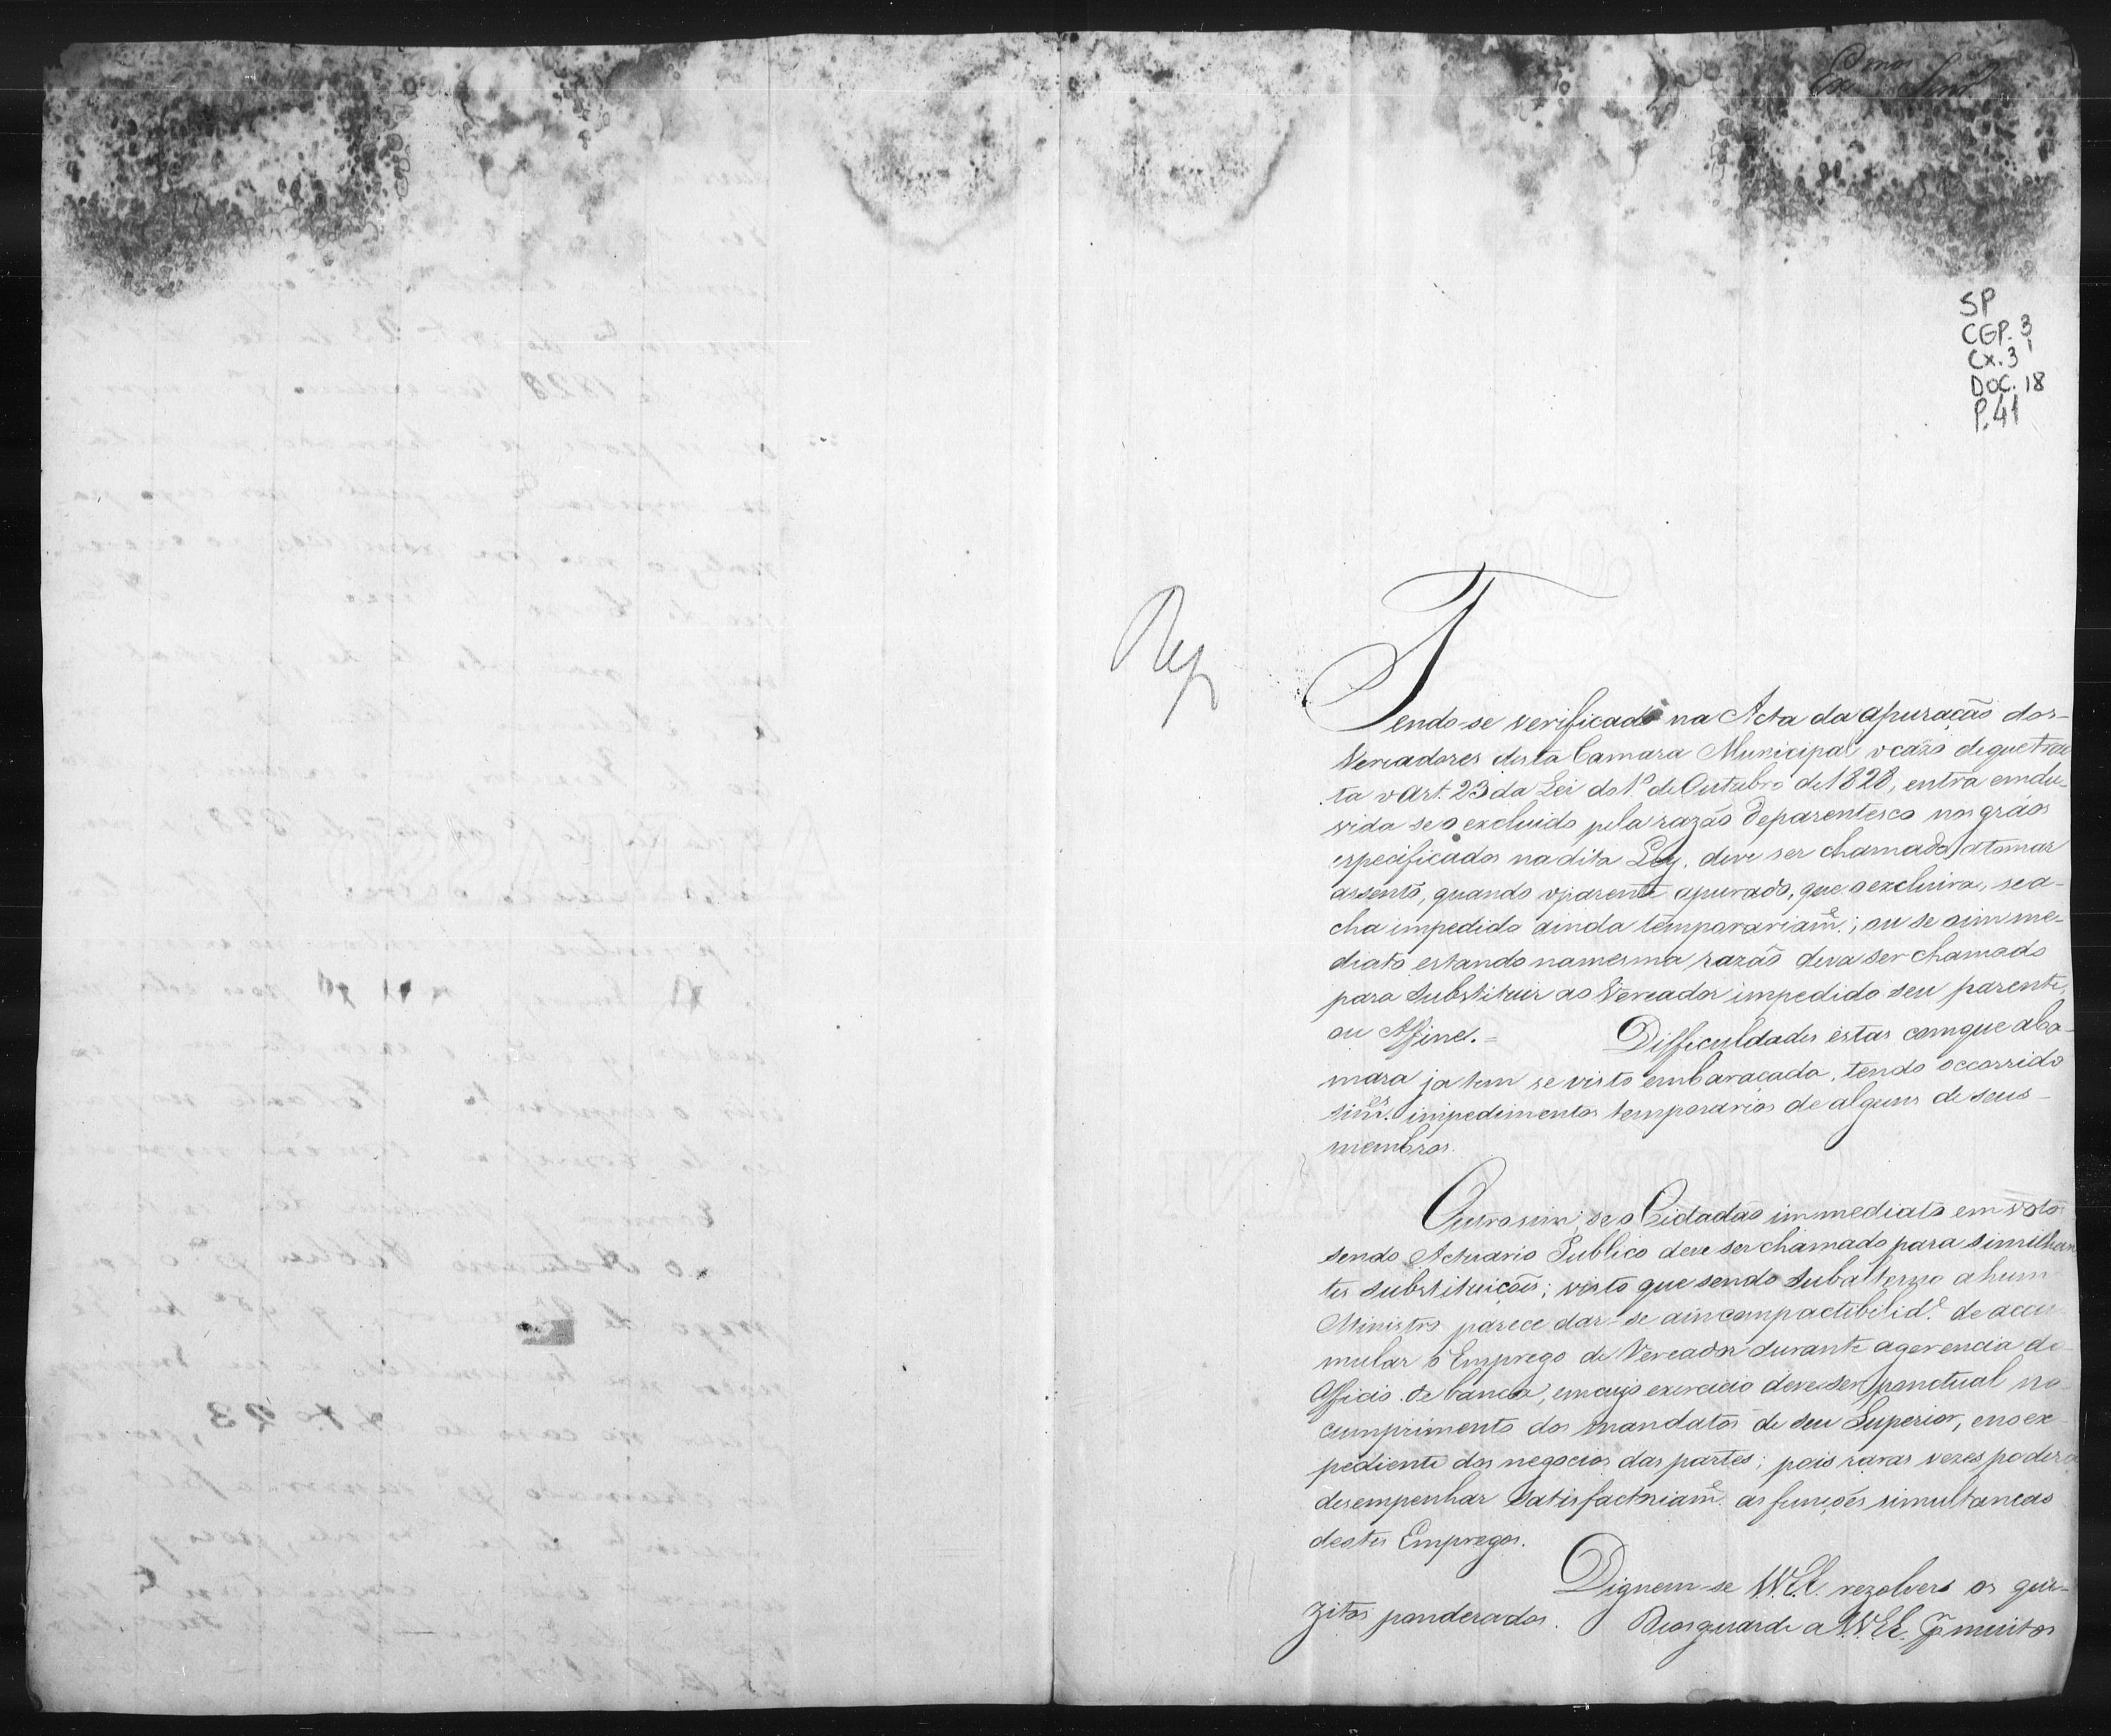 Exmos Snrs
SP
CGP. 3
CX. 3
DOC. 18
P. 41
Tendo-se verificado na Acta da apuração dos
Vereadores desta Camara Municipal o cazo de que tra
ta o Art. 23 da Lei do 1º de Outubro de 1828, entra em du-
vida se o excluido pela razão de parentesco nos gráos
especificados na dita Ley, deve ser chamado a tomar
assento, quando o parente apurado, que o excluira, se a-
cha impedido ainda temporariamᵉ; ou se o imme-
diato estando na mesma razão deva ser chamado
para substituir ao Vereador impedido seu parente,
ou Affine. = Difficuldades estas com que a Ca-
mara ja tem se visto embaraçada, tendo occorrido
simᵉˢ impedimentos temporarios de alguns de seus
membros.
Outrosim, se o Cidadão immediato em votos
sendo Actuario Publico deve ser chamado para similhan
tes substituicões; visto que sendo subalterno a hum
Ministro parece dar-se a incompactibelidᵉ de accu
mular o Emprego de Vereador durante a gerencia do
Officio de banca, em cujo exercicio deve ser ponctual no
cumprimento dos mandatos de seu Superior, e no ex-
pediente dos negocios das partes; pois raras vezes poderá
desempenhar satisfactoriamᵉ as funções simultaneas
destes Empregos.
Dignem-se VV.EE. rezolver os que-
zitos ponderados. Deos guarde a VV.EE. por muitos